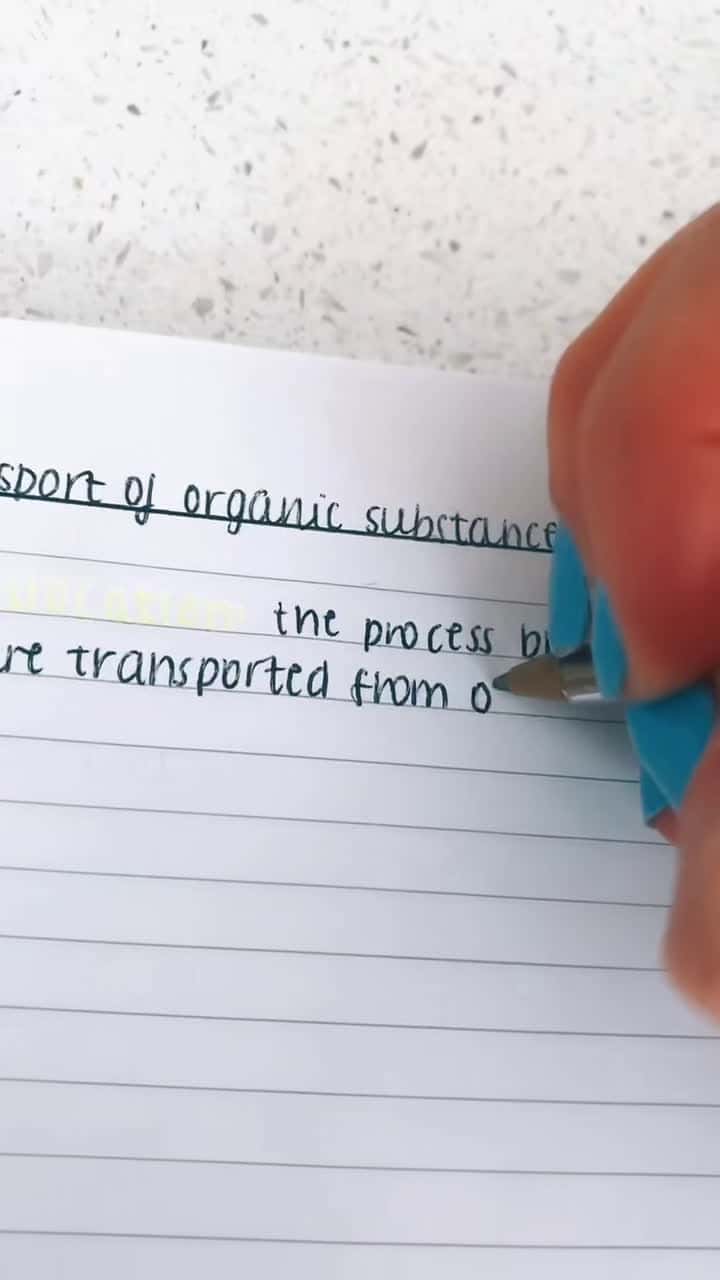 sport of organic substance
the process b
re transported from o